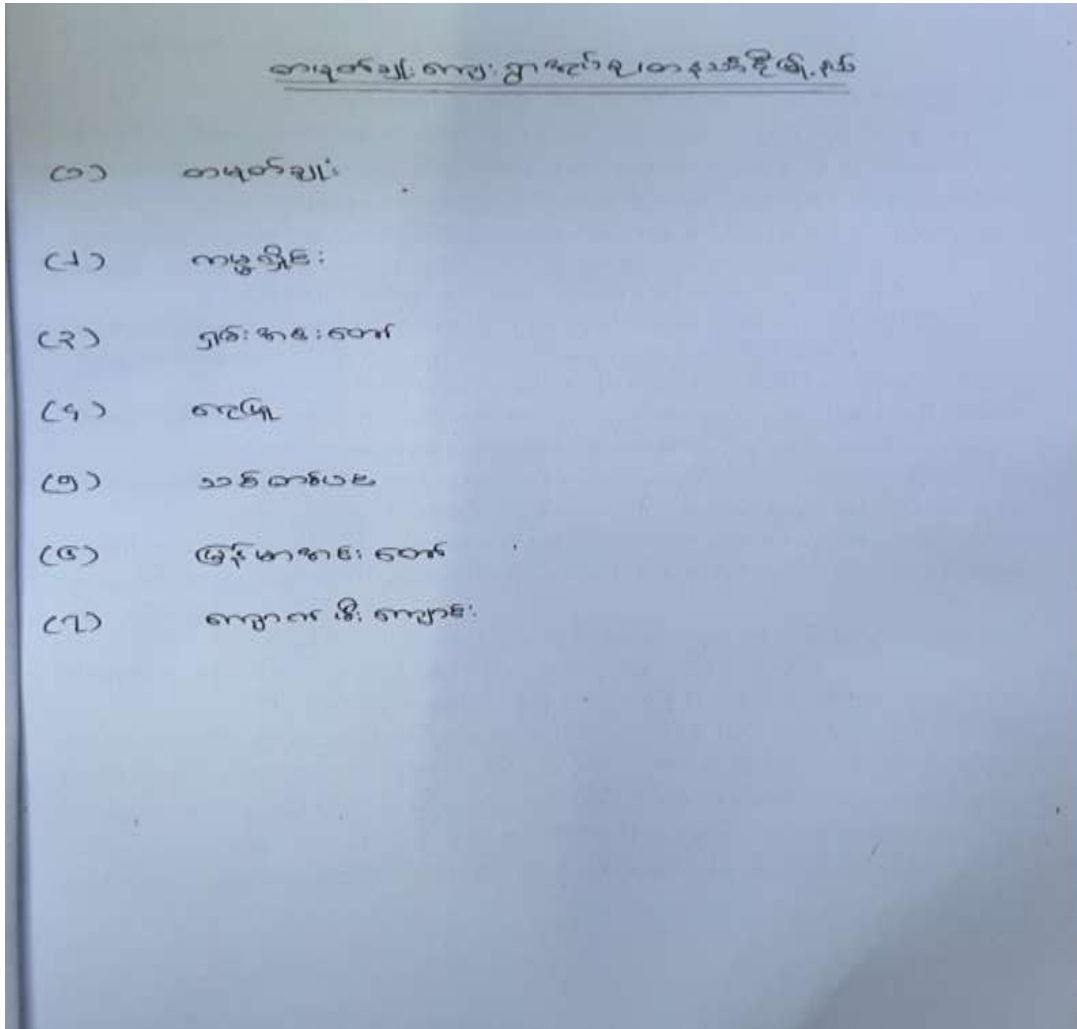 တမုတ်ချုံးကျေးရွာအုပ်စု၊ တနင်္သာရီမြို့နယ်
(၁) တမုတ်ချုံး
(၂) ကမ္မလှိုင်း
(၃) ရှမ်းအင်းတော်
(၄) ရေဖြူ
(၅) သစ်တစ်ပင်
(၆) မြန်မာအင်းတော်
(၇) ကျောက်မီးကျောင်း